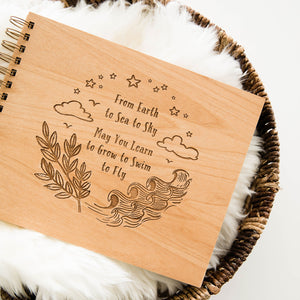 From Earth
to Sea to Sky
May You Learn
to Grow to Swim
to Fly